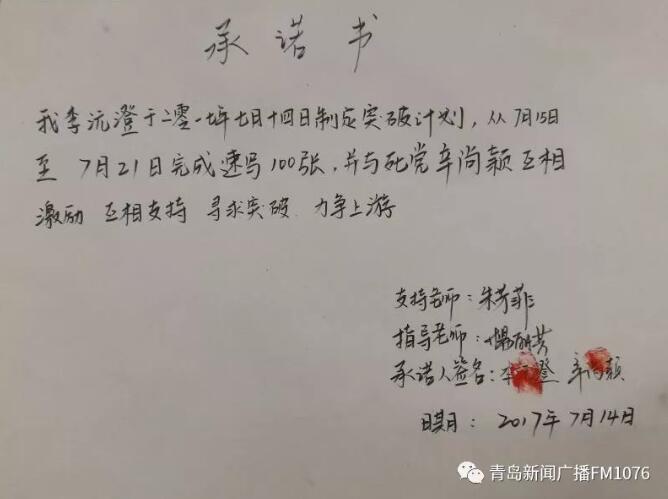 承诺书
我李沅澄于二零一七年七月十四日制定突破计划，从7月15日
至 7月21日完成速写100张，并与死党辛尚颖互相
激励 互相支持 寻求突破 力争上游
支持老师：朱芳菲
指导老师：
承诺人签名：李沅澄 辛尚颖
日期：2017年7月14日
青岛新闻广播FM1076